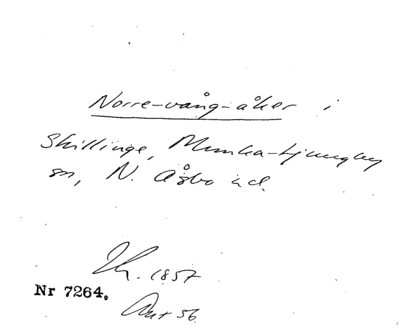 Norre-vång-åker i
Skillinge, Munka-Ljungby
sn, N. Åsbo hd.
1857
Nr 7264.
56